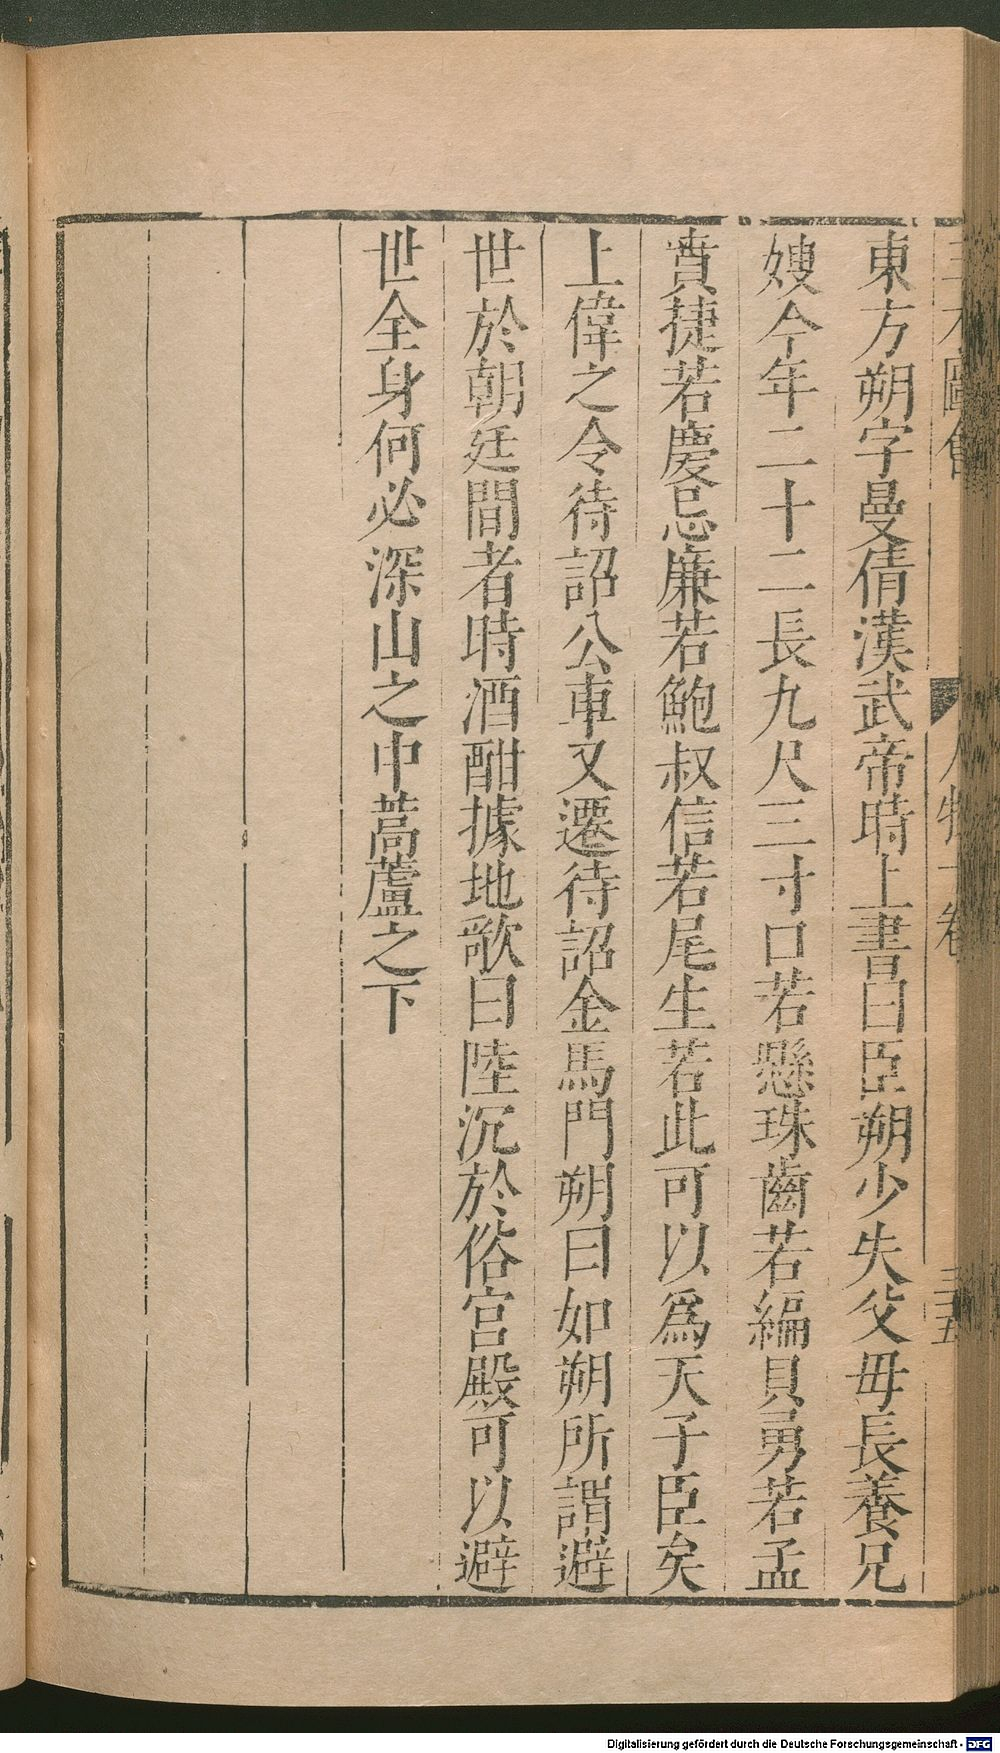 東方朔字曼倩漢武帝時上書曰臣朔少失父毋長養兄
嫂今年二十二長九尺三寸口若懸珠齒若編貝勇若孟
賁捷若慶忌廉若鮑叔信若尾生若此可以為天子臣矣
上偉之令待詔公車又遷待詔金馬門朔曰如朔所謂避
世於朝廷間者時酒酣據地歌曰陸沉於俗宮殿可以避
世全身何必深山之中蒿蘆之下
Digitalisierung gefördert durch die Deutsche Forschungsgemeinschaft - DFG